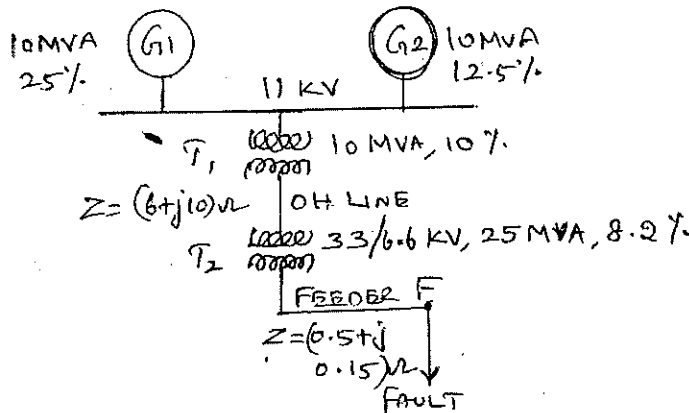 10MVA
25%.
G1
G2
10MVA
12.5%.
11 KV
T1
10 MVA, 10 %.
Z=(6+j10)Ω
OH LINE
T2
33/6.6 KV, 25 MVA, 8.2 %.
FEEDER F
Z=(0.5+j
0.15)Ω
FAULT